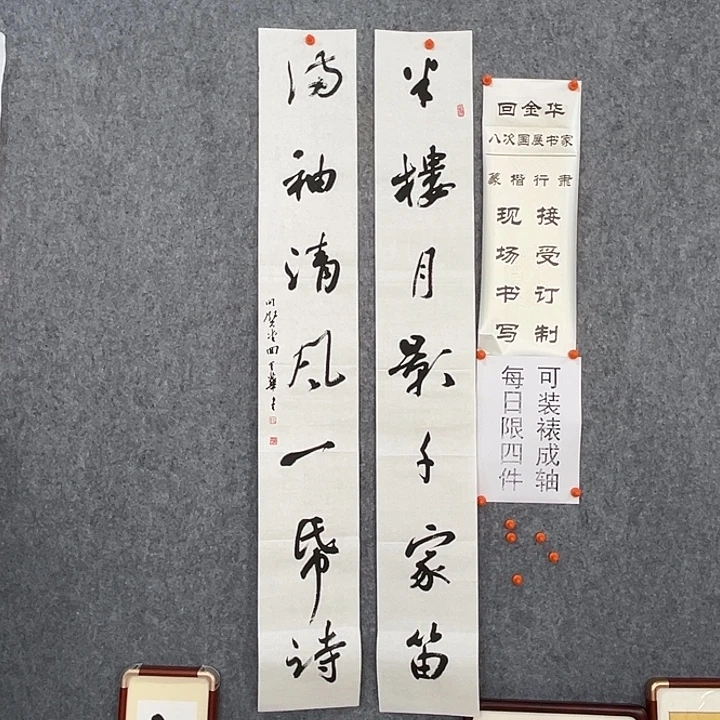 半樓月影千家笛
满袖清风一帋诗
回金华
八次国展书家
篆楷行隶
接受订制
现场书写
可装裱成轴
每日限四件